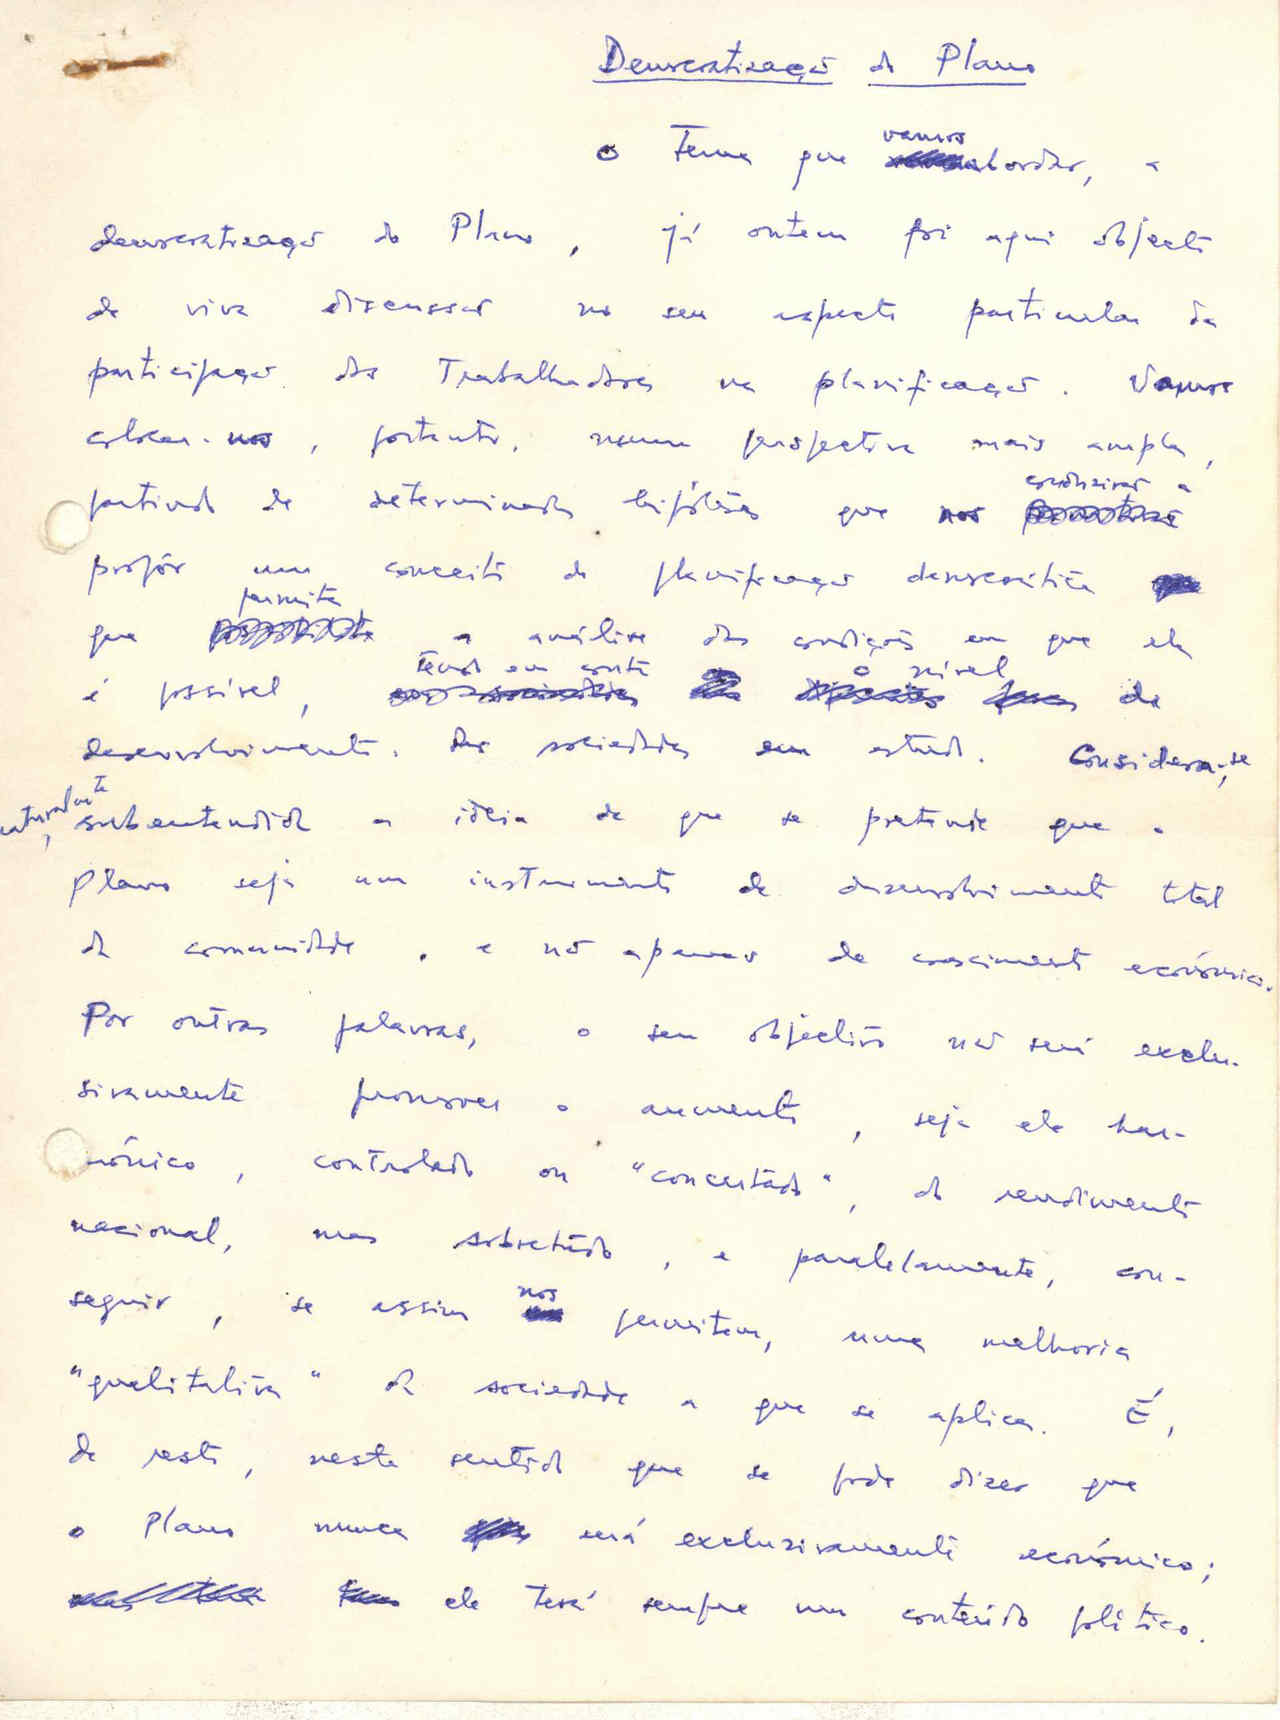 Democratização do Plano
O tema que vamos abordar, a
democratização do Plano, já ontem foi aqui objecto
de viva discussão no seu aspecto particular da
participação dos Trabalhadores na planificação. Vamos
colocar-nos, portanto, numa perspectiva mais ampla,
partindo de determinadas hipóteses que nos conduzirão a
propôr um conceito de planificação democrática
que permita a análise das condições em que ela
é possível, tendo em conta o nível de
desenvolvimento das sociedades em estudo. Considera-se,
naturalmente, subentendida a ideia de que se pretende que o
Plano seja um instrumento de desenvolvimento total
da comunidade, e não apenas de crescimento económico.
Por outras palavras, o seu objectivo não será exclu-
sivamente promover o aumento, seja ele har-
mónico, controlado ou "concertado", do rendimento
nacional, mas sobretudo, e paralelamente, con-
seguir, se assim nos permitem, uma melhoria
"qualitativa" da sociedade a que se aplica. É,
de resto, neste sentido que se pode dizer que
o Plano nunca será exclusivamente económico;
ele terá sempre um conteúdo político.